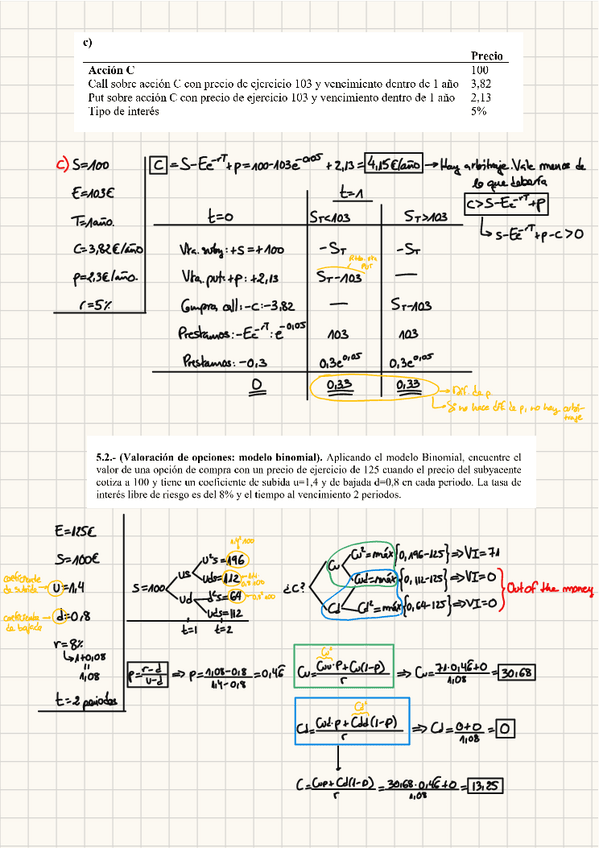 c)
Precio
Acción C 100
Call sobre acción C con precio de ejercicio 103 y vencimiento dentro de 1 año 3,82
Put sobre acción C con precio de ejercicio 103 y vencimiento dentro de 1 año 2,13
Tipo de interés 5%
c) S=100
E=103€
T=1año.
C=3,82€/año
p=2,3€/año.
r=5%
C = S-Ee^-rT+p=100-103e^-0,05+2,13= 4,15€/año → Hay arbitraje. Vale menos de lo que debería
C>S-Ee^-rT+P
↳ S-Ee^-rT+p-c>0
t=1
t=0 ST<103 ST>103
Vta. suby: +S=+100 -ST -ST
PUT
Vta. put: +p: +2,13 ST-103 —
Compra call: -C: -3,82 — ST-103
Prestamos: -Ee^-rT: e^-0,05 103 103
Prestamos: -0,3 0,3e^0,05 0,3e^0,05
0 0,33 0,33
↳ Si no hace dif de p, no hay arbitraje
5.2.- (Valoración de opciones: modelo binomial). Aplicando el modelo Binomial, encuentre el
valor de una opción de compra con un precio de ejercicio de 125 cuando el precio del subyacente
cotiza a 100 y tiene un coeficiente de subida u=1,4 y de bajada d=0,8 en cada periodo. La tasa de
interés libre de riesgo es del 8% y el tiempo al vencimiento 2 periodos.
E=125€
S=100€
coeficiente de subida u=1,4
coeficiente de bajada d=0,8
r=8%
↳ 1+0,08
=
1,08
t=2 periodos
1,4²·100
u²s=196
us
uds=112
S=100
ud
d²s=64 0,8²·100
uds=112
t=1 t=2
¿C?
Cu
Cu²=máx{0,196-125}⇒VI=71
Cud=máx{0,112-125}⇒VI=0
Cd
Cd²=máx{0,64-125}⇒VI=0
Out of the money
p=r-d/u-d ⇒ p=1,08-0,8/1,4-0,8=0,46
Cu²
Cu=Cuu·p+Cu(1-p)/r ⇒ Cu=71·0,46+0/1,08= 30,68
Cd²
Cd=Cud·p+Cdd(1-p)/r ⇒ Cd=0+0/1,08= 0
C=Cup+Cd(1-p)/r=30,68·0,46+0/1,08= 13,25